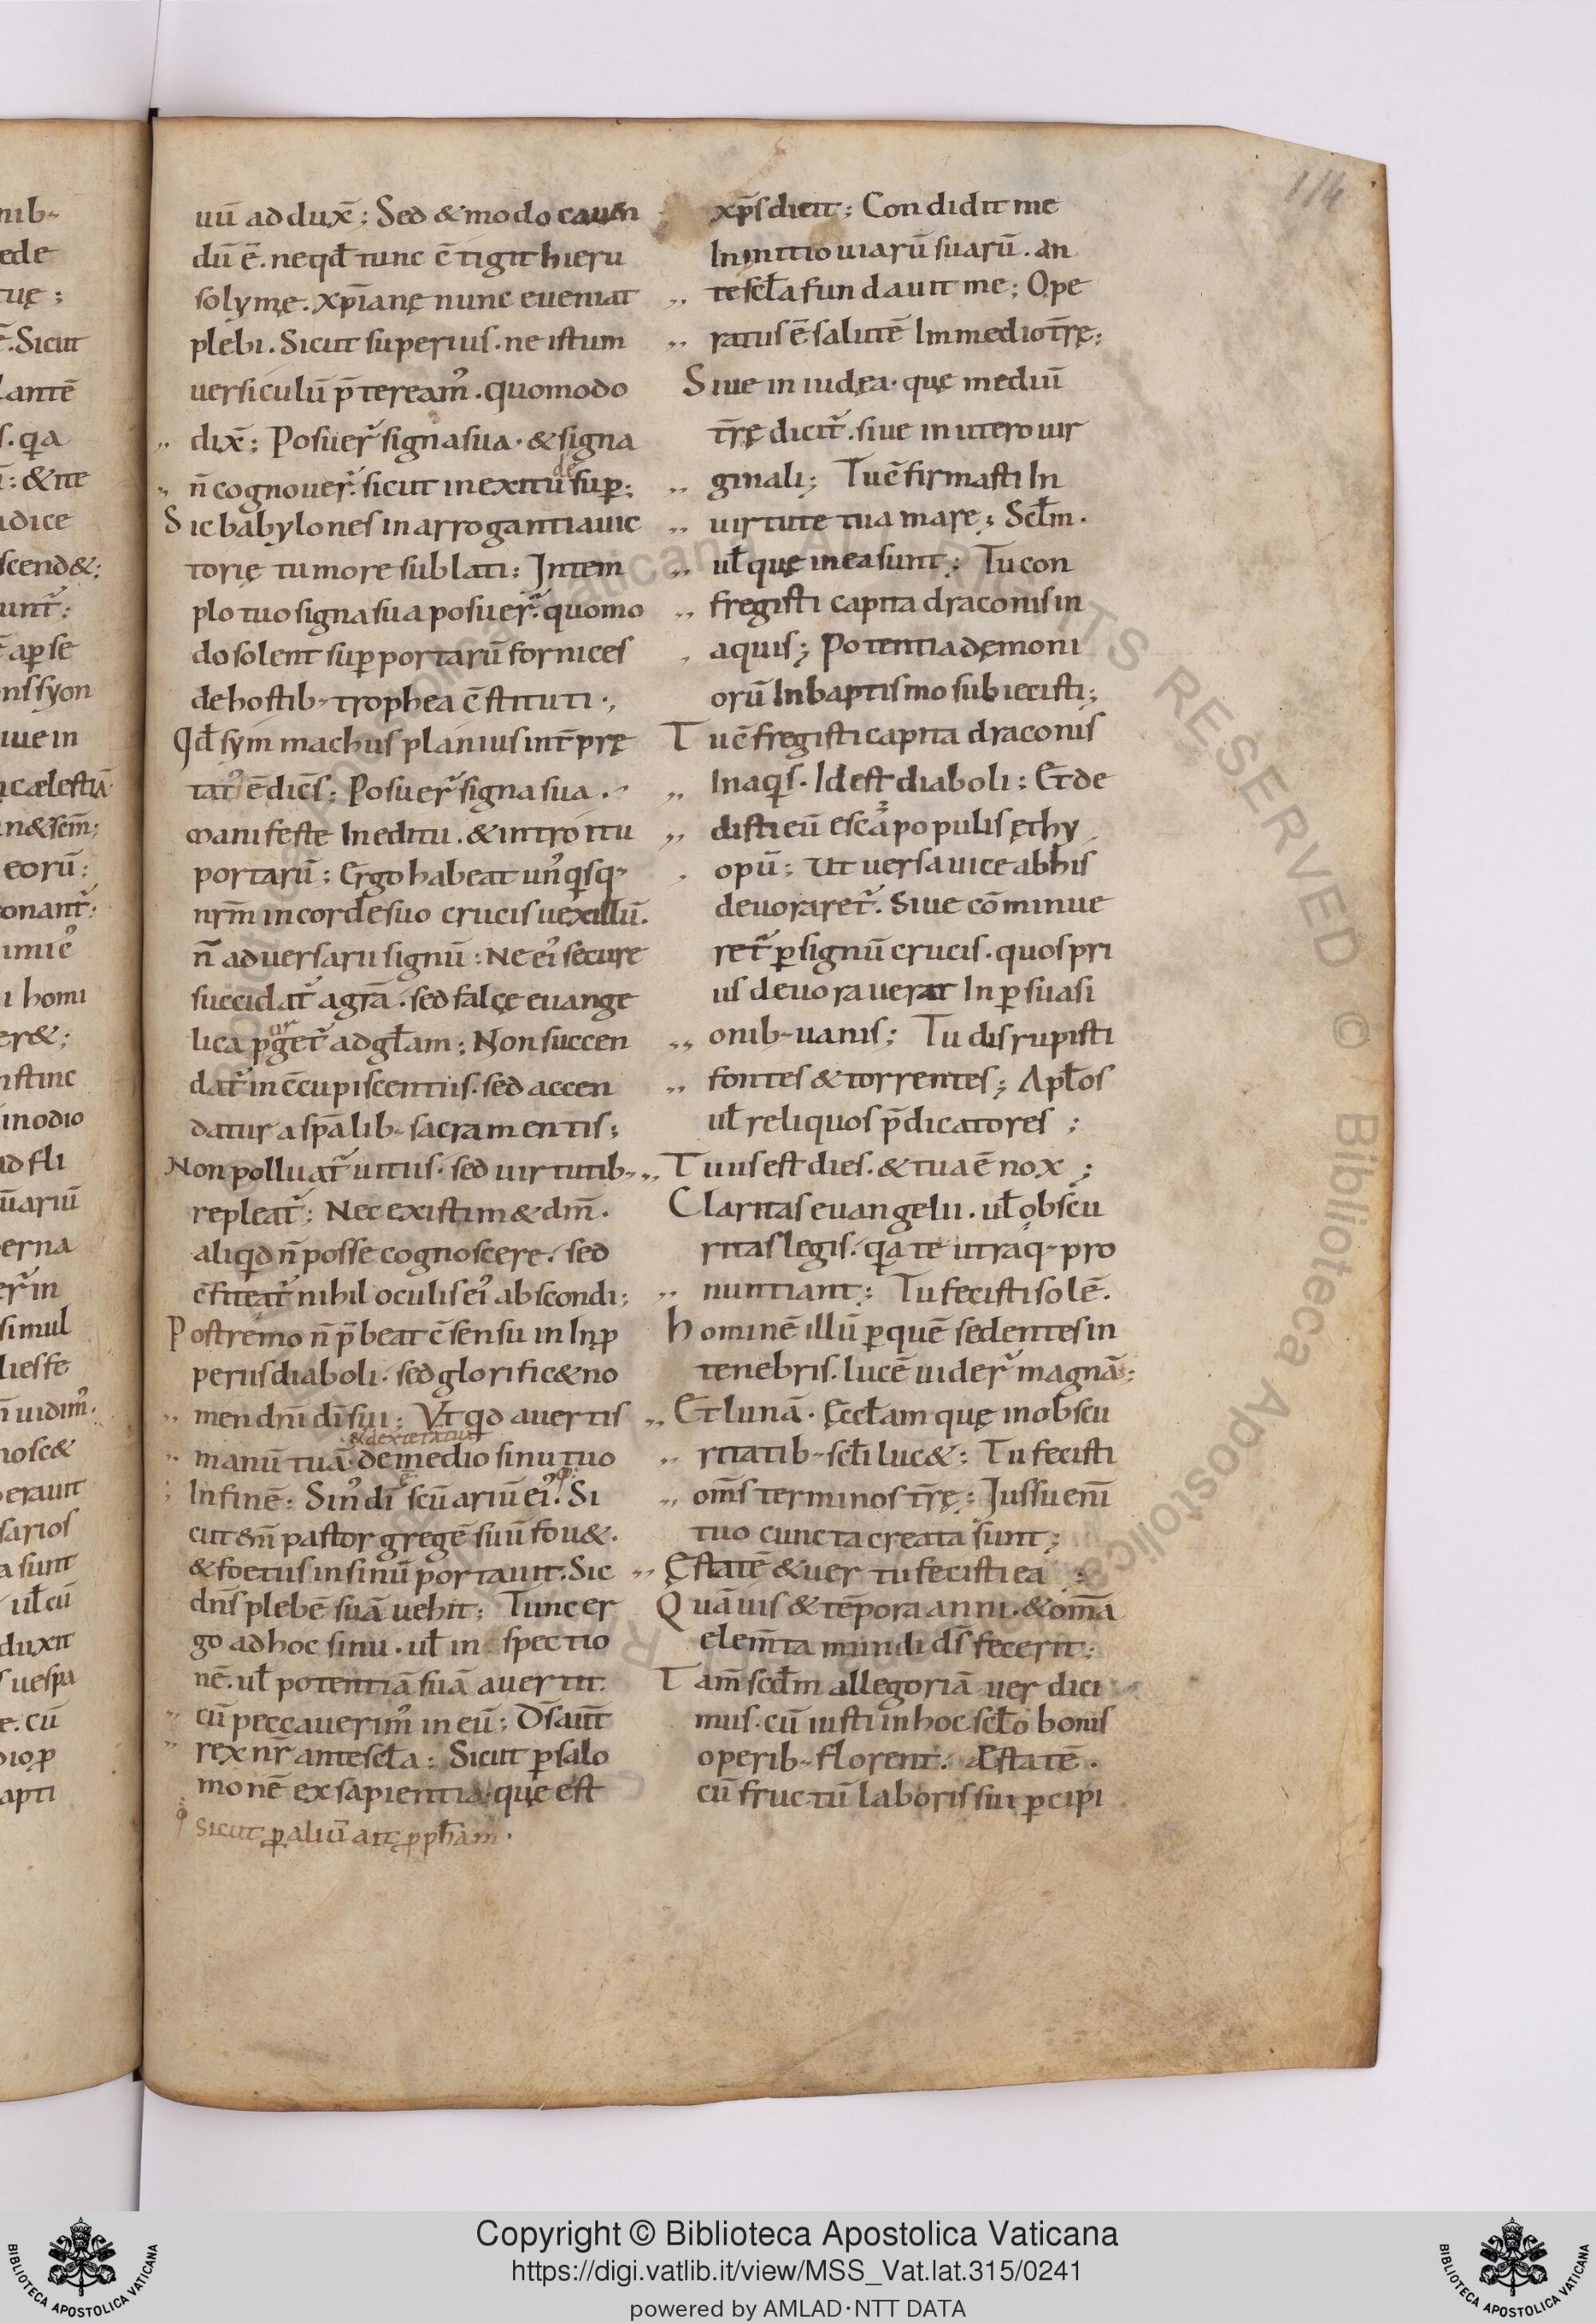 114
uū ad dux̄; Sed & modo cauen
dū ē. neqđ tunc c̄tigit hieru
solymę. xp̄ianę nunc eueniat
plebi. Sicut superius. ne istum
uersiculū p̄teream᾽. quomodo
dix̄; Posuer̄ signa sua. & signa
n̄ cognouer̄. sicut in exitu desuꝑ;
Sic babylones in arrogantia uic
torię tumore sublati; Intem
plo tuo signa sua posuer̄. quomo
do solent suꝑ portarū fornices
de hostib- trophea c̄stituti.,
Qđ symmachus planius int̄prę
tat᾽ ē dic̄s; Posuer̄ signa sua.
manifeste In editu. & introitu
portarū; Ergo habeat un᾽qisq-
nr̄m in corde suo crucis uexillū.
n̄ aduersarii signū; Ne ei᾽ secure
succidat̄ a gr̄a. sed falce euange
lica purget̄ ad gł̄am; Non succen
dat̄ in c̄cupiscentiis. sed accen
datur a sp̄alib- sacramentis;
Non polluat̄ uitiis. sed uirtutib-
repleat̄; Nec existim& dm̄.
aliqd n̄ posse cognoscere. sed
c̄fiteat̄ nihil oculis ei᾽ abscondi;
Postremo n̄ p̄beat c̄sensū in Inꝓ
periis diaboli. sed glorific& no
men dn̄i dī sui; Vt qd auertis
& dexterā tuā
manū tuā de medio sinu tuo
In finē; Sin᾽ dī ē scuariū ei᾽. Si
cut enī pastor gregē suū fou&.
& foetus in sinū portauit. Sic
dn̄s plebē suā uehit; Tunc er
go ad hoc sinu. uł in spectio
nē. uł potentiā suā auertit.
cū peccauerim᾽ in eū; Ds̄ aut̄
rex nr̄ ante scła; Sicut ꝑ salo
monē ex sapientia. quę est
Sicut ꝑ aliū ait ꝓpham.
xp̄s dicit; Condidit me
In initio uiarū suarū. an
te scła fundauit me; Ope
ratus ē salutē Im medio t̄rę;
Siue in iudęa. quę mediū
t̄rę dicit̄. siue in utero uir
ginali; Tu c̄firmasti In
uirtute tua mare; Scłm.
uł quę in ea sunt; Tu con
fregisti capita draconis in
aquis; Potentia dęmoni
orū In baptismo subiecisti;
Tu c̄fregisti capita draconis
In aqis. Id est diaboli; Et de
disti eū escā populis ęthy
opū; Ut uersa uice ab his
deuoraret̄. Siue cōminue
ret̄ ꝑ signū crucis. quos pri
us deuorauerat In ꝑsuasi
onib- uanis; Tu disrupisti
fontes & torrentes; Apłos
uł reliquos p̄dicatores;
Tuus est dies. & tua ē nox;
Claritas euangelii. uł obscu
ritas legis. qa te utraq- pro
nuntiant; Tu fecisti solē.
hominē illū ꝑ quē sedentes in
tenebris. lucē uider̄ magnā;
Et lunā. Ęccłam quę in obscu
ritatib- scłi luc&; Tu fecisti
om̄s terminos t̄rę; Iussu enī
tuo cuncta creata sunt;
Ęstatē & uer tu fecisti ea;
Quāuis & tēpora anni. & om̄a
elem̄ta mundi ds̄ fecerit;
Tam̄ scd̄m allegoriā uer dici
mus. cū iusti in hoc scło bonis
operib- florent. Ęstatē.
cū fructū laboris sui ꝑcipi
nib-
ede
tuę;
Sicut
lantē
s. qa
& ite
adice
scend&;
unt̄;
aꝑ se
ns syon
iue in
cælestiā
eorū;
onant̄;
i homi
er&;
istinc
modio
ad fli
uariū
erna
er̄ in
simul
liesse
n̄ uidim᾽.
nosc&
erauit
sarios
a sunt
uł cū
duxit
uespa
e. cū
apti
Copyright © Biblioteca Apostolica Vaticana
https://digi.vatlib.it/view/MSS_Vat.lat.315/0241
powered by AMLAD·NTT DATA
BIBLIOTECA APOSTOLICA VATICANA
BIBLIOTECA APOSTOLICA VATICANA